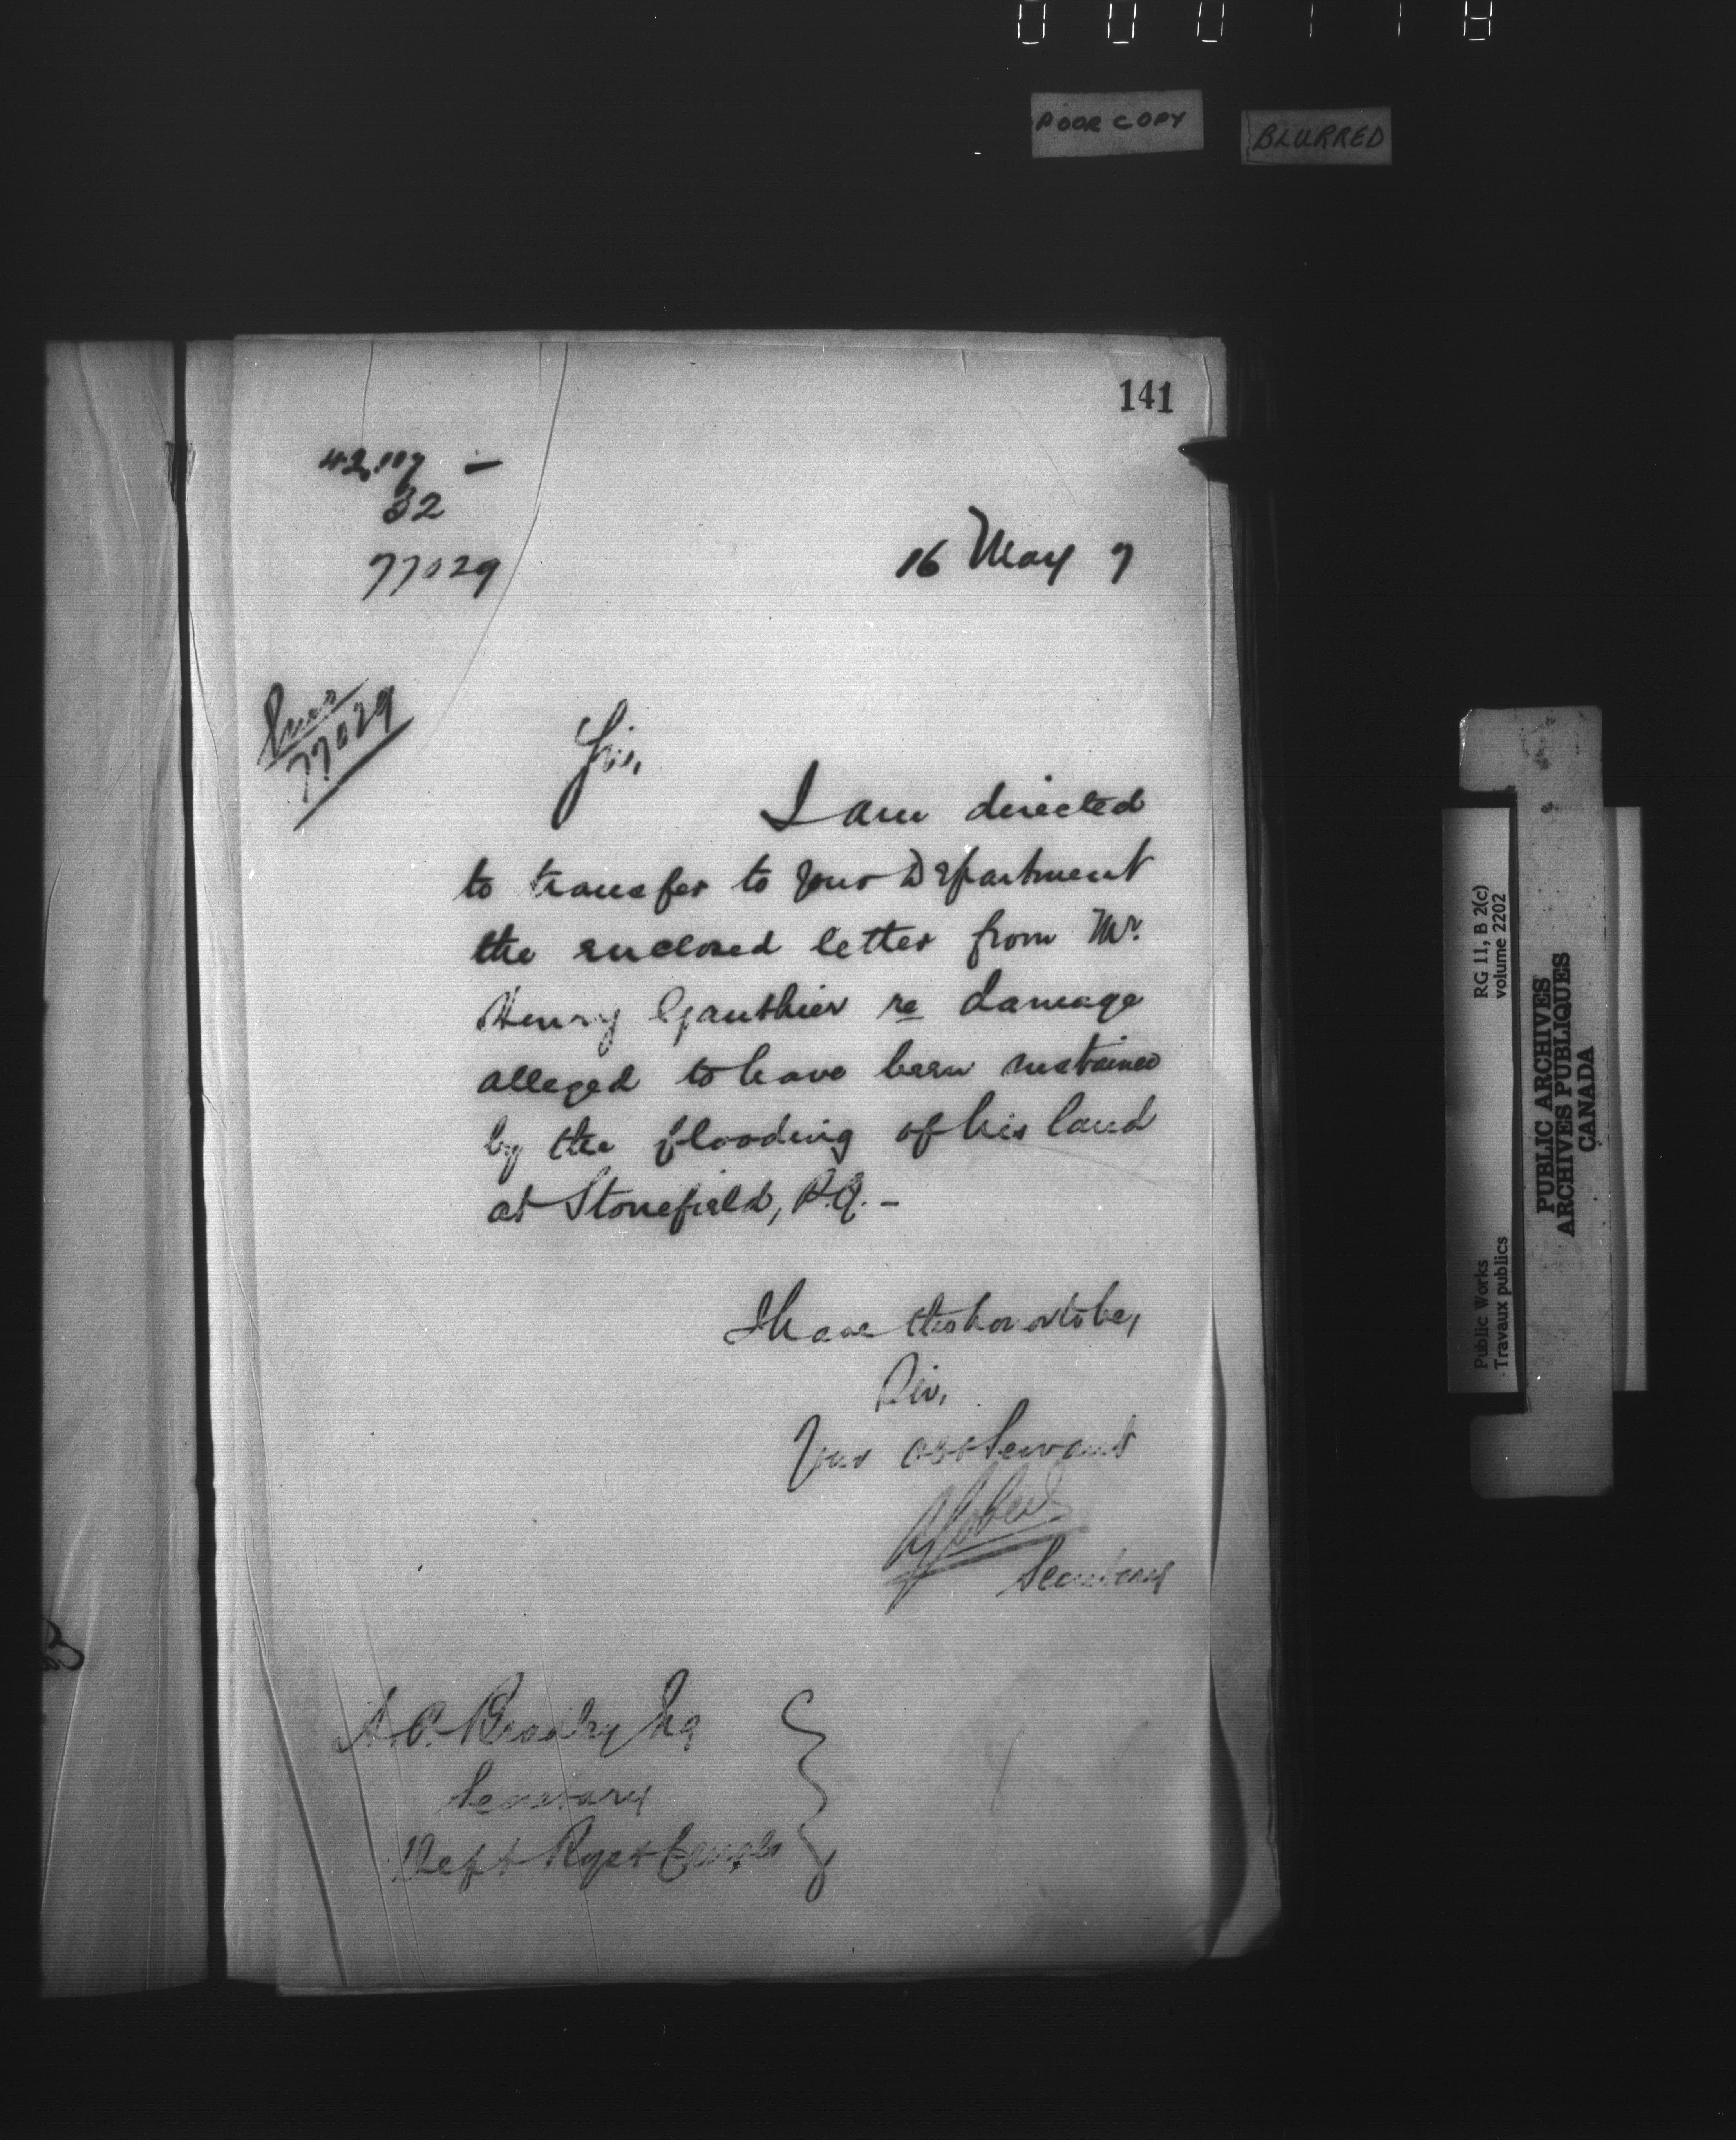 000118
POOR COPY
BLURRED
141
42,107 —
32
77029
16 May 7
77029
Sir,
I am directed
to transfer to your Department
the enclosed letter from Mr.
Henry Gauthier re damage
alleged to have been sustained
by the flooding of his land
at Stonefield, P.Q. -
I have the honor to be,
Sir,
Your obt Servant
Secretary
A.P. Bradley Esq
Secretary
Dept Rys & Canals
RG 11, B 2(c)
volume 2202
Public Works
Travaux publics
PUBLIC ARCHIVES
ARCHIVES PUBLIQUES
CANADA